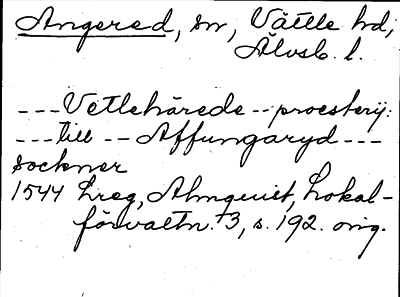 Angered, sn, Vättle hd,
Älvsb. l.
---Vetlehärede--proesterij:
---till--Affungaryd---
sockner
1544 Lreg, Almquist, Lokal-
förvaltn. 3, s. 192. orig.